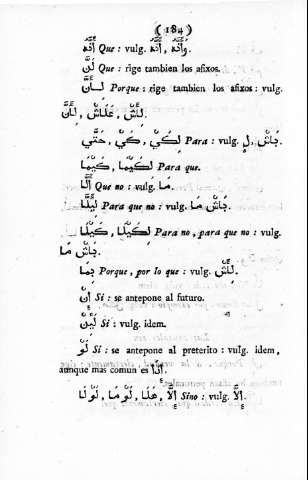 ( 184 )
أَنَّهُ Que : vulg. أَنَّهُ , وَأَنَّهُ.
لَنَّ Que : rige tambien los afixos.
لِـأَنَّ Porque : rige tambien los afixos : vulg.
لِأَنَّ , عَلَاشْ , لَأَشْ.
لِكَيْ , كَيْ , حَتَّي Para : vulg. لِ , بَاشْ.
لِكَيْمَا , كَيْمَا Para que.
أَلَّا Que no : vulg. مَا.
لِيَلَّا Para que no : vulg. بَاشْ مَا.
لِكَيْلَا , كَيْلَا Para no, para que no : vulg.
بَاشْ مَا.
بِمَا Porque, por lo que : vulg. لِأَشْ.
إِنْ Si : se antepone al futuro.
لَيِنْ Si : vulg. idem.
لَوْ Si : se antepone al preterito : vulg. idem,
aunque mas comun es إِذَا.
إِلَّا , هَلَا , لَوْمَا , لَوْلَا Sino : vulg. إِلَّا.